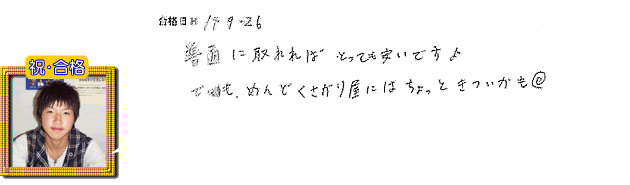 合格日 19-9-26
普通に取れれば とっても安いですよ
でも、めんどくさがり屋にはちょっときついかも@
祝・合格